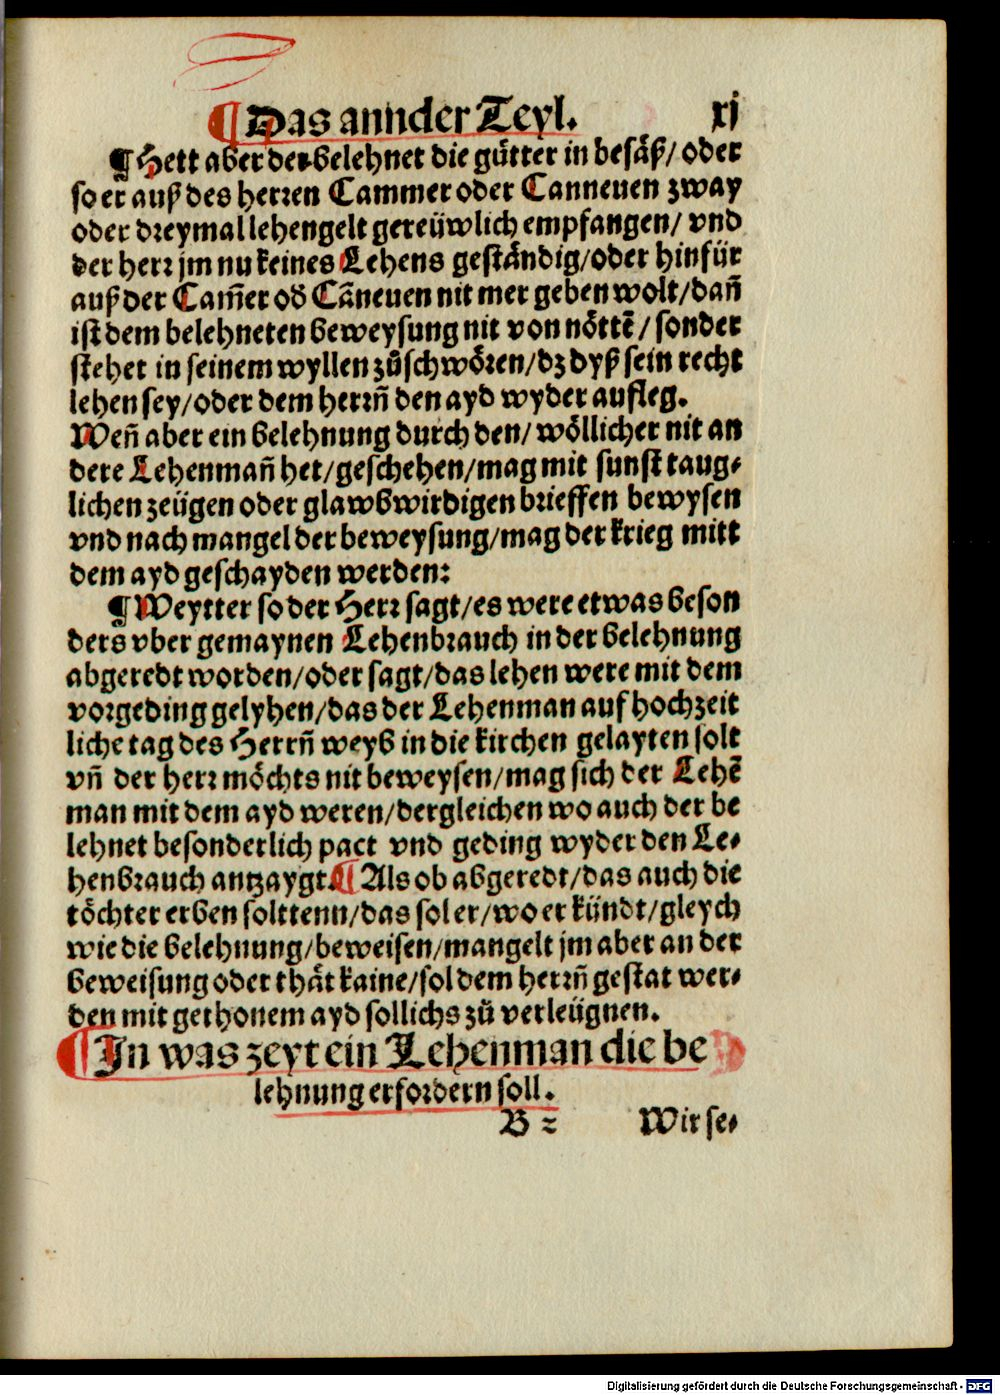 ¶ Das annder Teyl. xj
¶ Hett aber der belehnet die gütter in besäß/ oder
so er auß des herren Cammer oder Canneuen zway
oder dreymal lehengelt gereüwlich empfangen/ vnd
der herr jm nu keines Lehens geständig/oder hinfür
auß der Cam̄er od̕ Cāneuen nit mer geben wolt/dan̄
ist dem belehneten beweysung nit von nöttē/ sonder
stehet in seinem wyllen zůschwören/dz dyß sein recht
lehen sey/oder dem herrn̄ den ayd wyder aufleg.
Wen̄ aber ein belehnung durch den/ wöllicher nit an
dere Lehenman̄ het/geschehen/mag mit sunst taug⸗
lichen zeügen oder glawbwirdigen brieffen bewysen
vnd nach mangel der beweysung/mag der krieg mitt
dem ayd geschayden werden:
¶ Weytter so der Herr sagt/es were etwas beson
ders vber gemaynen Lehenbrauch in der belehnung
abgeredt worden/oder sagt/das lehen were mit dem
vorgeding gelyhen/das der Lehenman auf hochzeit
liche tag des Herrn̄ weyb in die kirchen gelayten solt
vn̄ der herr möchts nit beweysen/mag sich der Lehē
man mit dem ayd weren/dergleichen wo auch der be
lehnet besonderlich pact vnd geding wyder den Le⸗
henbrauch antzaygt. ¶ Als ob abgeredt/das auch die
töchter erben solttenn/das sol er/wo er kündt/gleych
wie die belehnung/beweisen/mangelt jm aber an der
beweisung oder thät kaine/sol dem herrn̄ gestat wer⸗
den mit gethonem ayd sollichs zů verleügnen.
¶ In was zeyt ein Lehenman die be
lehnung erfordern soll.
B 2 Wir se⸗
Digitalisierung gefördert durch die Deutsche Forschungsgemeinschaft - DFG